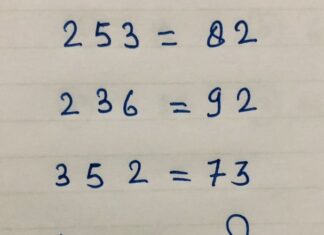 253 = 82
236 = 92
352 = 73